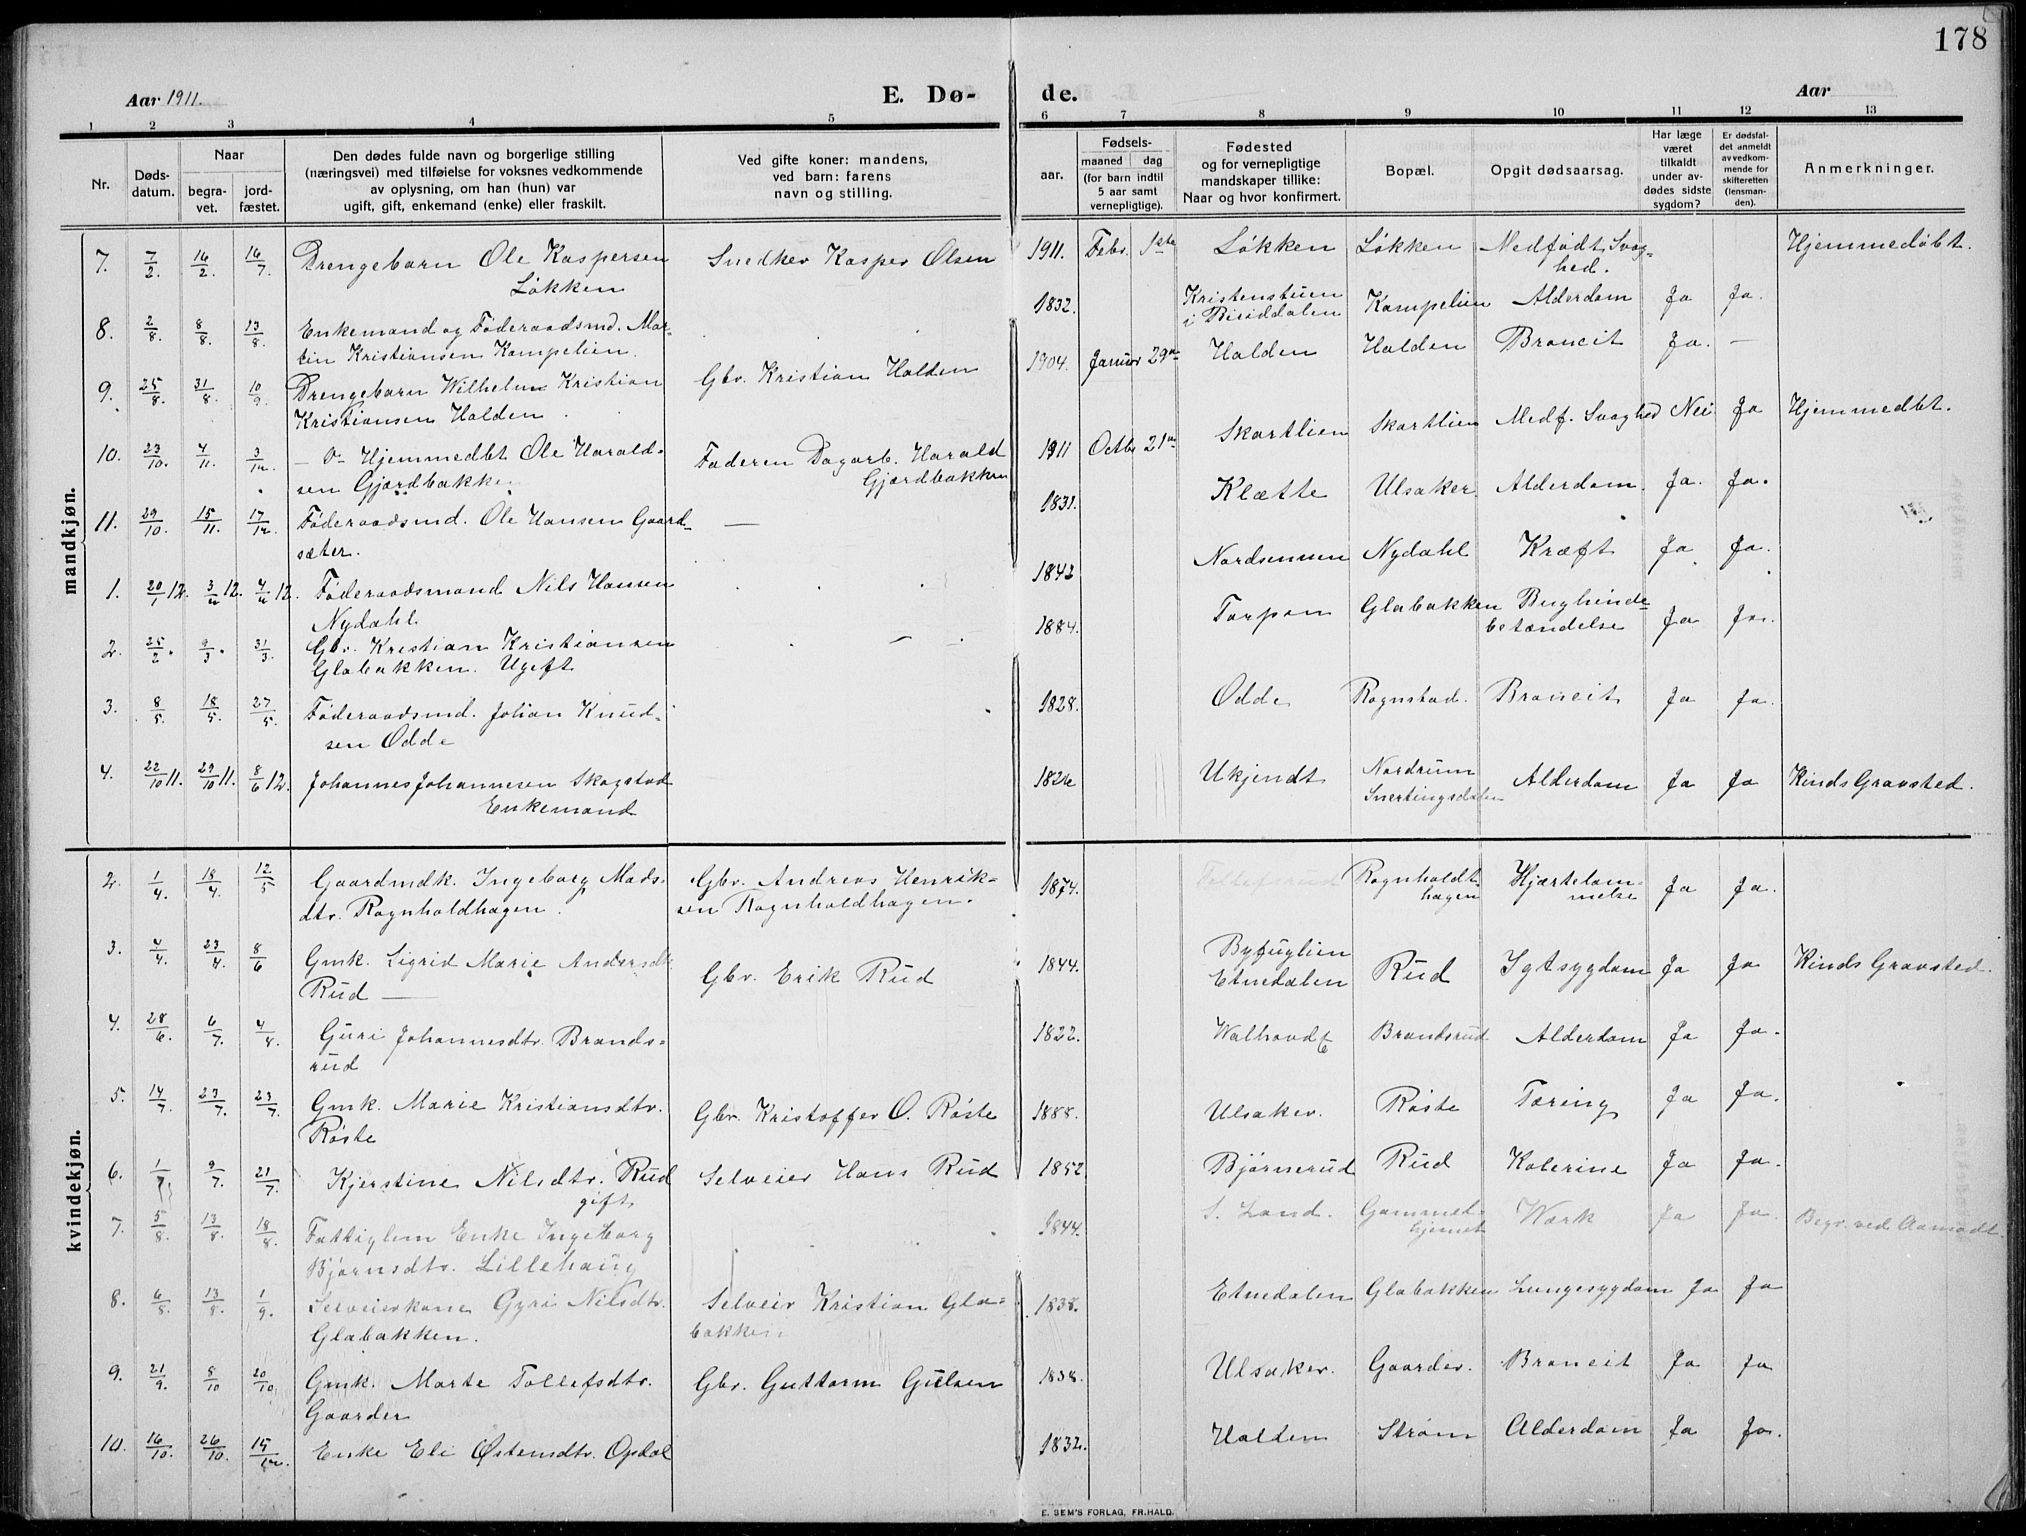 178
Aar 1911.
E. Dø-
de.
Aar
1 2 3 4 5 6 7 8 9 10 11 12 13
Nr.
Døds-
datum.
Naar
begra-
vet.
jord-
fæstet.
Den dødes fulde navn og borgerlige stilling
(næringsvei) med tilføielse for voksnes vedkommende
av oplysning, om han (hun) var
ugift, gift, enkemand (enke) eller fraskilt.
Ved gifte koner: mandens,
ved barn: farens
navn og stilling.
aar.
Fødsels-
maaned dag
(for barn indtil
5 aar samt
vernepligtige).
Fødested
og for vernepligtige
mandskaper tillike:
Naar og hvor konfirmert.
Bopæl.
Opgit dødsaarsag.
Har læge
været
tilkaldt
under av-
dødes sidste
sygdom?
Er dødsfal-
det anmeldt
av vedkom-
mende for
skifteretten
(lensman-
den).
Anmerkninger.
mandkjøn.
7. 7/2 16/2 16/7 Drengebarn Ole Kaspersen Snedker Kasper Olsen 1911. Febr. 1ste Løkken Løkken Medfødt Svag- Hjemmedøbt.
Løkken hed.
8. 2/8 8/8 13/8 Enkemand og Føderaadsmd. Mar- 1832. Kristenstuen Kampelien Alderdom Ja Ja.
tin Kristiansen Kampelien. i Biriddalen
9. 25/8 31/8 10/9 Drengebarn Wilhelm Kristian Gbr. Kristian Halden 1904. Januar 29de Halden Halden Broncit Ja. —
Kristiansen Halden
10. 23/10 4/11 3/12 — D— Hjemmedbt Ole Harald- Faderen Dagarb. Harald 1911 Octbr 21de Skartlien Skartlien Medf. Svaghed Nei Ja Hjemmedbt.
sen Gjærdbakken Gjærdbakken
11. 29/10 15/11 17/12 Føderaadsmd. Ole Hansen Gaard- — 1831. Klætte Ulsaker Alderdom. Ja. Ja.
sæter.
1. 20/1 12. 3/2 12. 4/2 12. Føderaadsmand Nils Hansen 1843 Nordsennen Nydahl Kræft Ja Ja.
Nydahl
2. 25/2 9/3 31/3 Gbr. Kristian Kristiansen 1884. Torpen Glæbakken Bughinde-
betændelse Ja Ja.
Glæbakken. Ugift
3. 8/5 18/5 27/5 Føderaadsmd. Johan Knud- 1828. Odde Rognstad. Broncit Ja Ja.
sen Odde
4. 22/10 11. 29/10 11. 8/6 12. Johannes Johannesen Skogstad Ukjendt Nordrum Alderdom Ja Ja Kinds Gravsted.
Enkemand Snertingsdalen
kvindekjøn.
2. 1/4 18/4 12/5 Gaardmdk. Ingeborg Mads- Gbr. Andreas Henrik- 1874. Rognholdt- Hjærtelam- Ja Ja.
dtr. Rognholdhagen. sen Rognholdhagen. hagen melse
3. 4/4 23/4 8/6 Gmk. Sigrid Marie Andersdt. Gbr. Erik Rud 1844. Byfuglien Rud Igtsygdom Ja Ja Kinds Gravsted.
Rud — Etnedalen
4. 28/6 6/7 4/8 Guri Johannesdtr. Brands- 1822. Walhovd Brandsrud Alderdom Ja Ja.
rud
5. 14/7. 23/7. 23/7. Gmk. Marie Kristiansdtr. Gbr. Kristoffer O. Røste 1888. Ulsaker. Røste Tæring Ja Ja.
Røste
6. 1/7 9/7. 21/7 Kjerstine Nilsdtr. Rud Selveier Hans Rud 1852 Bjørnerud Rud Kolerine Ja Ja.
gift
7. 5/8. 13/8 18/8. Fattiglem Enke Ingeborg 1844. S. Land. Gammel- Wærk Ja Ja. Begr. ved Aamodt.
Bjørnsdtr. Lillehaug hjemet
8. 6/8. 13/8 1/9. Selveierkone Gyri Nilsdtr. Selveir Kristian Glæ- 1838. Etnedalen Glæbakken Lungesygdom Ja Ja
Glæbakken. bakken
9. 21/9. 8/10 20/10 Gmk. Marte Tollefsdtr. Gbr. Guttorm Gulsen 1838. Ulsaker. Gaarder. Broncit Ja Ja
Gaarder
10. 16/10. 26/10 15/12. Enke Eli Østensdtr. Opdal 1832. Halden Strøm Alderdom Ja Ja.
E. SEM'S FORLAG, FR.HALD.